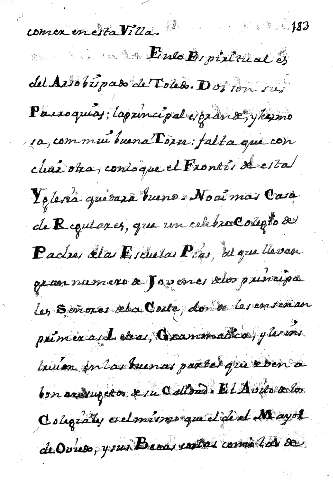 183
comer en esta Villa.
En lo Espiritual es
del Arzobispado de Toledo. Dos son sus
Parroquias: la principal es grande, y hermo
sa, con mui buena Torre: falta que con
cluir otra, con lo que el Frontis de esta
Yglesia quedará bueno. No ai mas Casa
de Regulares, que un celebre Colegio de
Padres de las Escuelas Pias, al que llevan
gran numero de Jovenes de los principa
les Señores de la Corte, donde les enseñan
primeras Letras, Grammatica, y les ins
truien en las buenas partes que deben a
bonar sugetos de su Calidad. El Avito de los
Colegiales es el mismo que el de el Mayor
de Oviedo, y sus Becas como las de